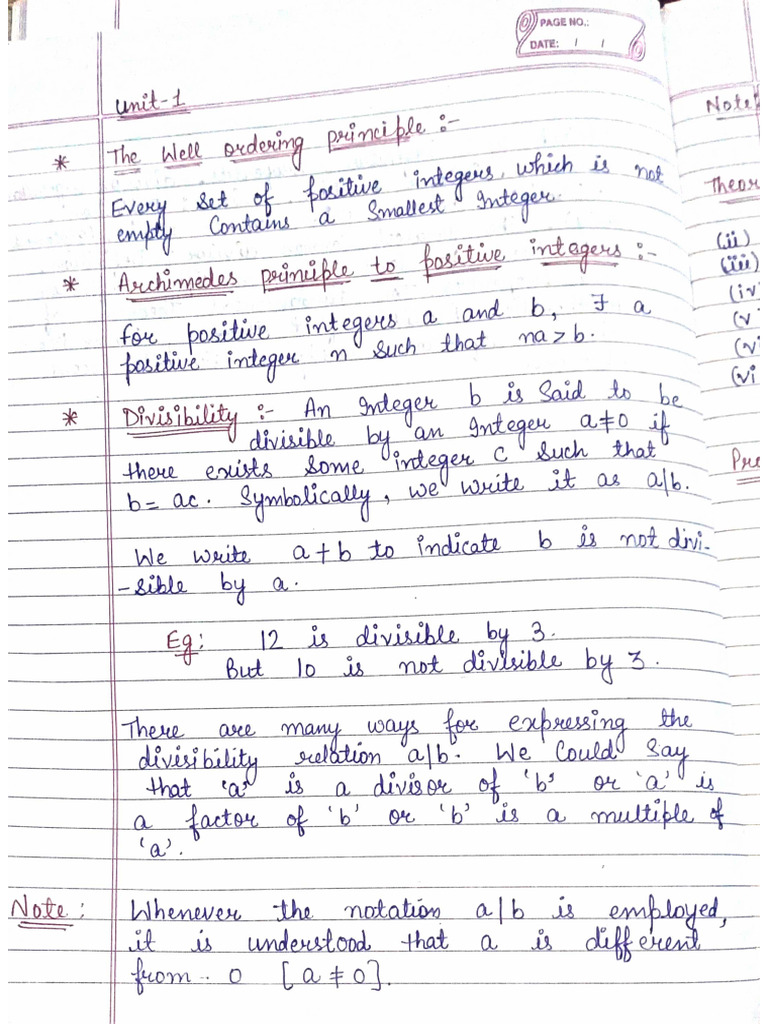 PAGE NO.:
DATE: / /
Unit-1
* The Well ordering principle :-
Every set of positive integers which is not
empty Contains a Smallest Integer.
* Archimedes principle to positive integers :-
for positive integers a and b, ∃ a
positive integer n such that na > b.
* Divisibility :- An Integer b is Said to be
divisible by an Integer a≠0 if
there exists some integer c Such that
b = ac. Symbolically, we write it as a|b.
We write a∤b to indicate b is not divi-
-sible by a.
Eg: 12 is divisible by 3.
But 10 is not divisible by 3.
There are many ways for expressing the
divisibility relation a|b. We Could Say
that 'a' is a divisor of 'b' or 'a' is
a factor of 'b' or 'b' is a multiple of
'a'.
Note: Whenever the notation a|b is employed,
it is understood that a is different
from 0 [a ≠ 0].
Note
Theor
(ii)
(iii)
(iv
(v
(vi
(vi
Pro